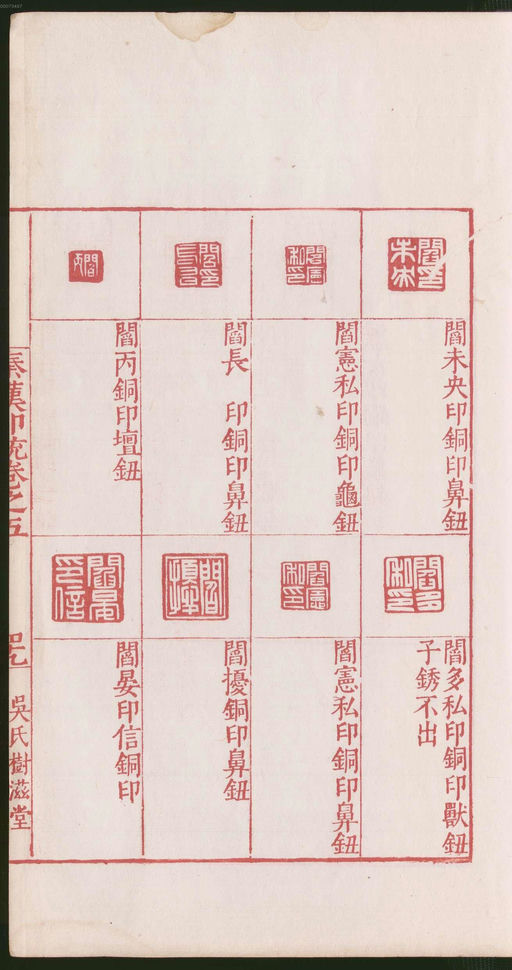 閻未央印銅印鼻鈕
閻憲私印銅印龜鈕
閻長　印銅印鼻鈕
閻丙銅印壇鈕
閻多私印銅印獸鈕
子銹不出
閻憲私印銅印鼻鈕
閻擾銅印鼻鈕
閻晏印信銅印
秦漢印統卷之五
吳氏樹滋堂